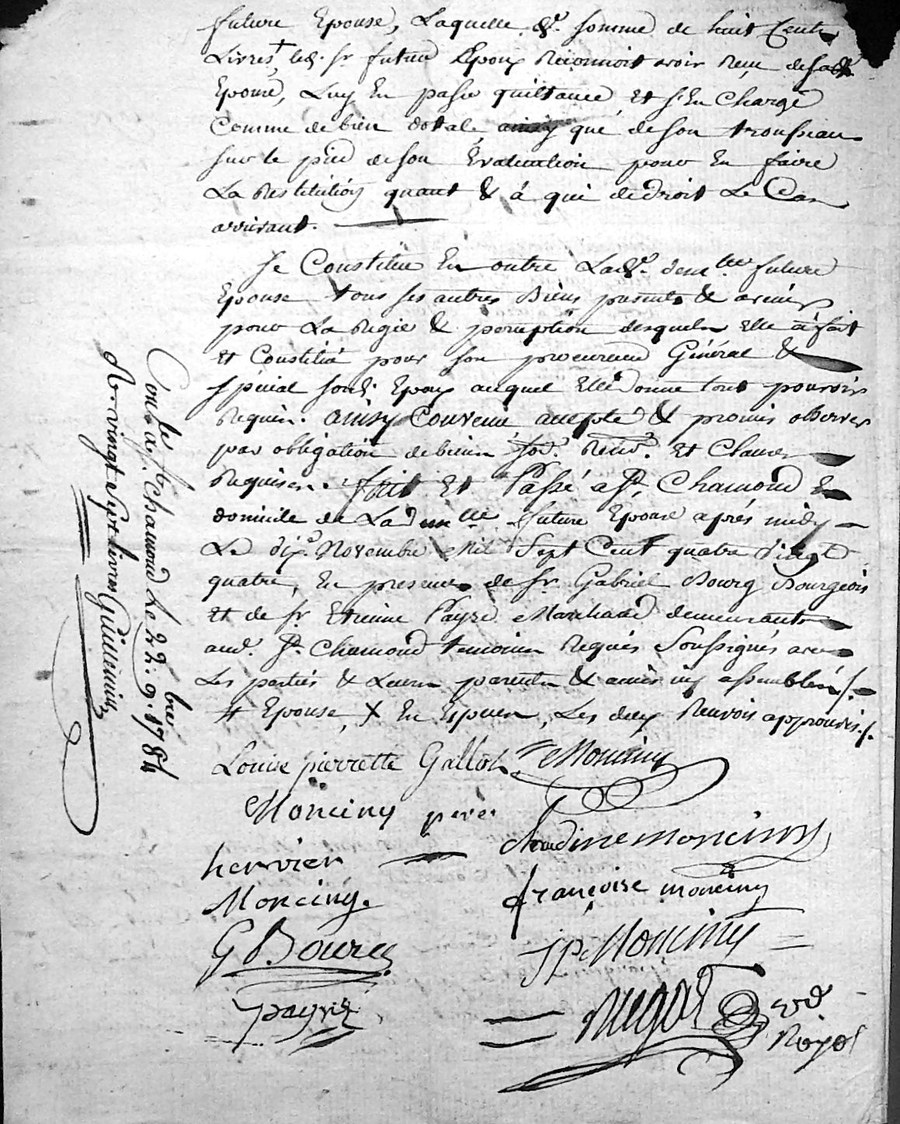 future Epouse, Laquelle de. somme de huit Cent
Livres, led. sr futur Epoux Reconnoit avoir Reçu de sad.
Epouse, Luy En passe quittance et s'En Charge
Comme de bien dotal, ainsy que de son troussau
sur le pied de son Evaluation pour En faire
La Restitution quant & à qui de droit Le Cas
arrivant.
Se Constitue En outre Lade. demlle future
Epouse tous ses autres Biens presents & avenirs
pour La Regie & perception desquels elle à fait
et Constitué pour son procureur Général &
spécial sond. Epoux auquel Elle donne tout pouvoir
Requis. ainsy Convenu accepté & promis observer
par obligation de biens Et Clauses
Requises. fait Et Passé a St. Chamond En
domicile de La dlle future Epouse après midy
Le dix Novembre Mil Sept Cent quatre vingt
quatre, En presence de sr. Gabriel Bourg Bourgeois
et de sr Etienne Payre Marchand demeurants
aud. St. Chamond temoins Requis Soussignés avec
Les parties & Leurs parents & amis icy assemblés ./.
# Epouse, X En Especes, Les deux Renvois approuvés ./.
Louise pierrette Gallot Monciny
Monciny pere
Claudine monciny
hervier
françoise monciny
Monciny.
JP Monciny
G Bourg
payre
Contlé. à St. Chamond Le 22. 9.bre 1784
Rt. vingt Sept Livres Guillemin